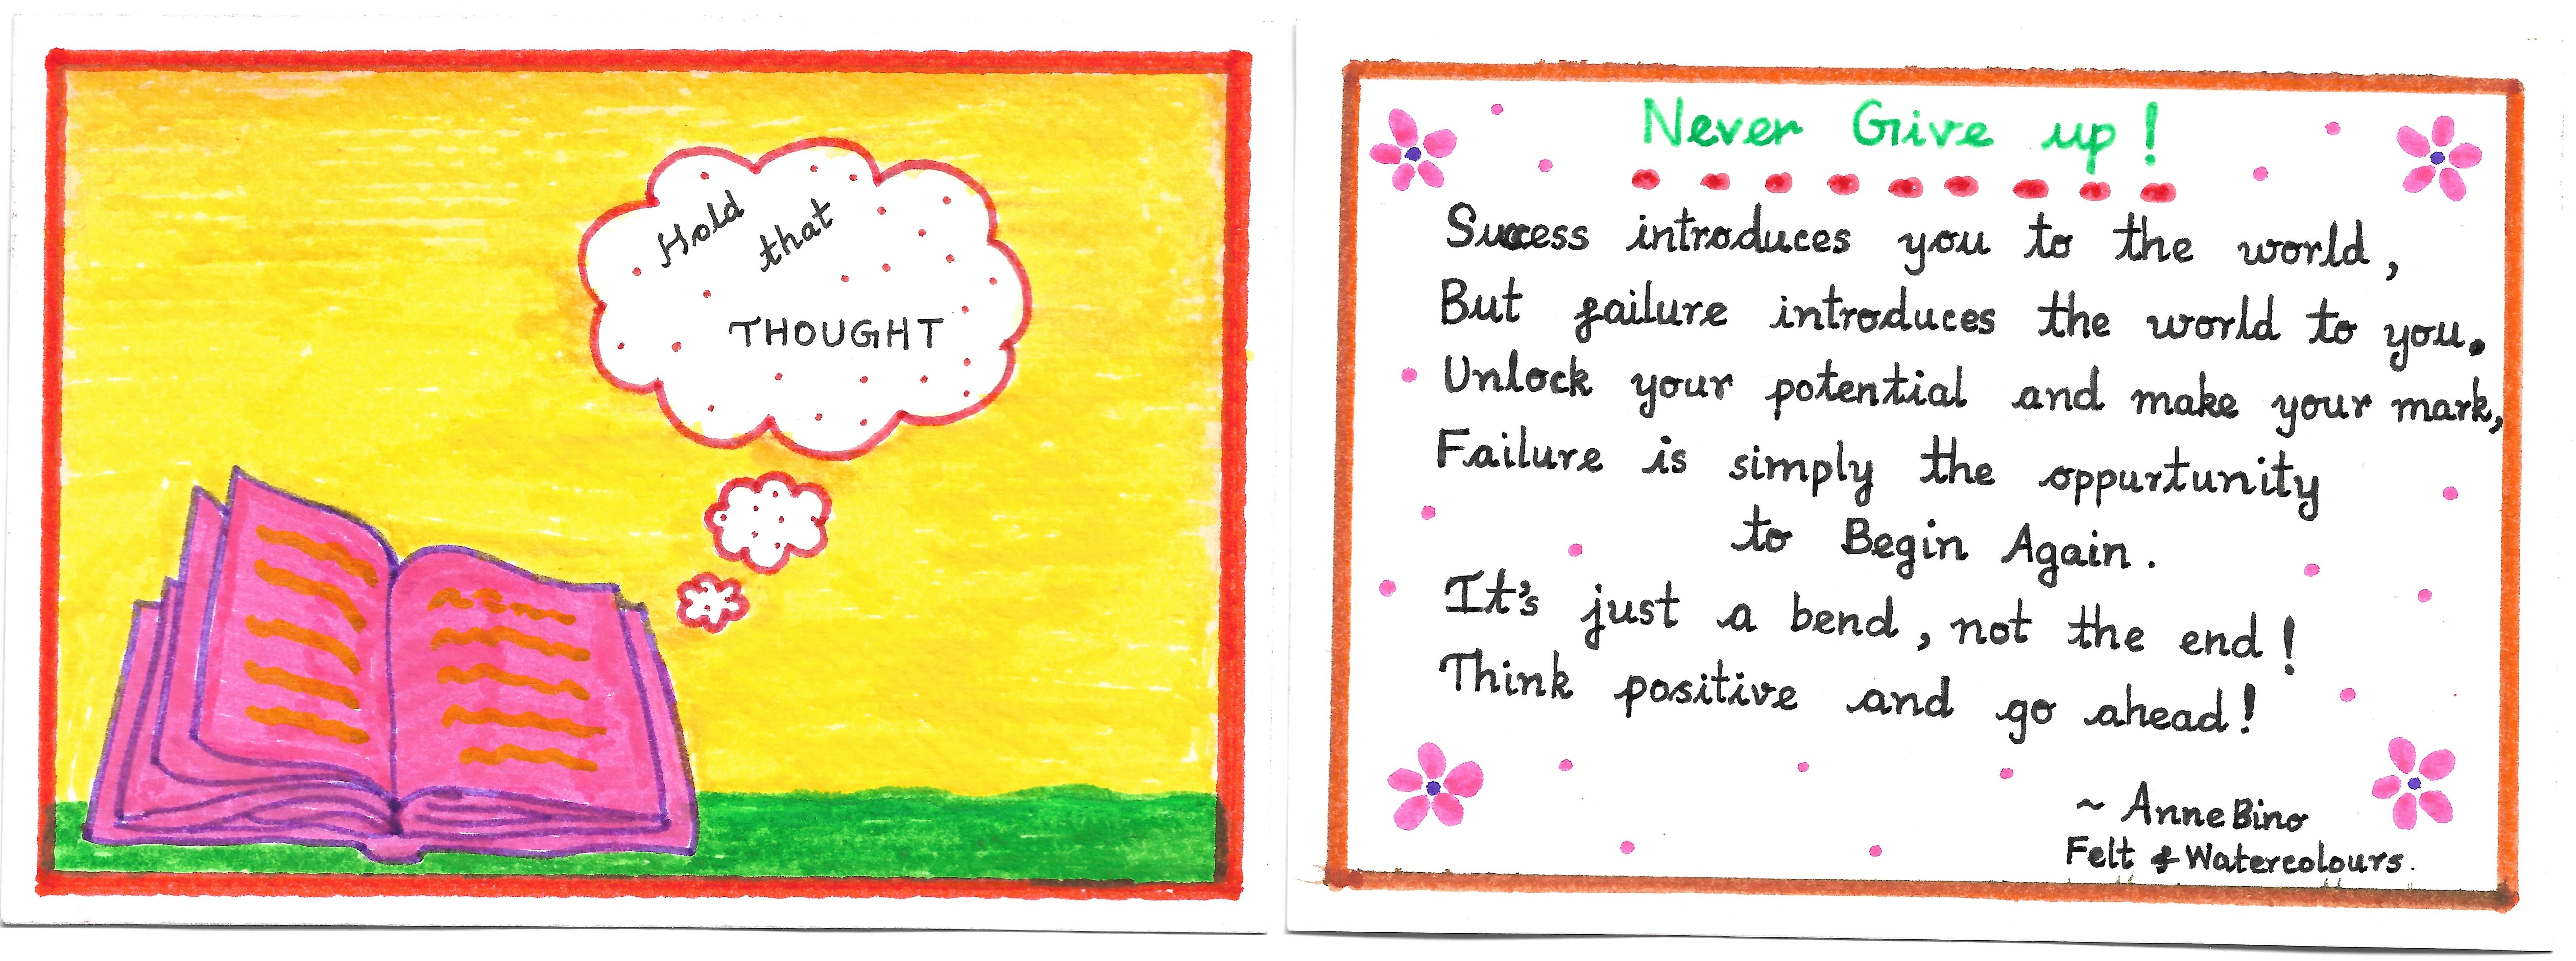 Hold
that
THOUGHT
Never Give up!
Success introduces you to the world,
But failure introduces the world to you.
Unlock your potential and make your mark,
Failure is simply the oppurtunity
to Begin Again.
It's just a bend, not the end!
Think positive and go ahead!
~ Anne Bino
Felt & Watercolours.